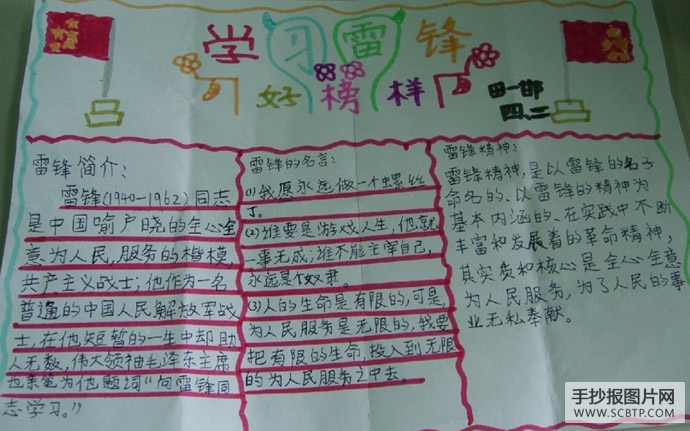 学习雷锋
好榜样
四、二
雷锋简介:
雷锋(1940-1962)同志
是中国喻户晓的全心全
意为人民服务的楷模,
共产主义战士;他作为一名
普通的中国人民解放军战
士,在他短暂的一生中却助
人无数,伟大领袖毛泽东主席
也亲笔为他题词“向雷锋同
志学习。”
雷锋的名言:
(1)我愿永远做一个螺丝
丁。
(2)谁要是游戏人生,他就
一事无成;谁不能主宰自己,
永远是个奴隶。
(3)人的生命是有限的,可是,
为人民服务是无限的,我要
把有限的生命,投入到无限
的为人民服务之中去。
雷锋精神:
雷锋精神,是以雷锋的名子
命名的、以雷锋的精神为
基本内涵的、在实践中不断
丰富和发展着的革命精神,
其实质和核心是全心全意
为人民服务,为了人民的事
业无私奉献。
手抄报图片网
WWW.SCBTP.COM